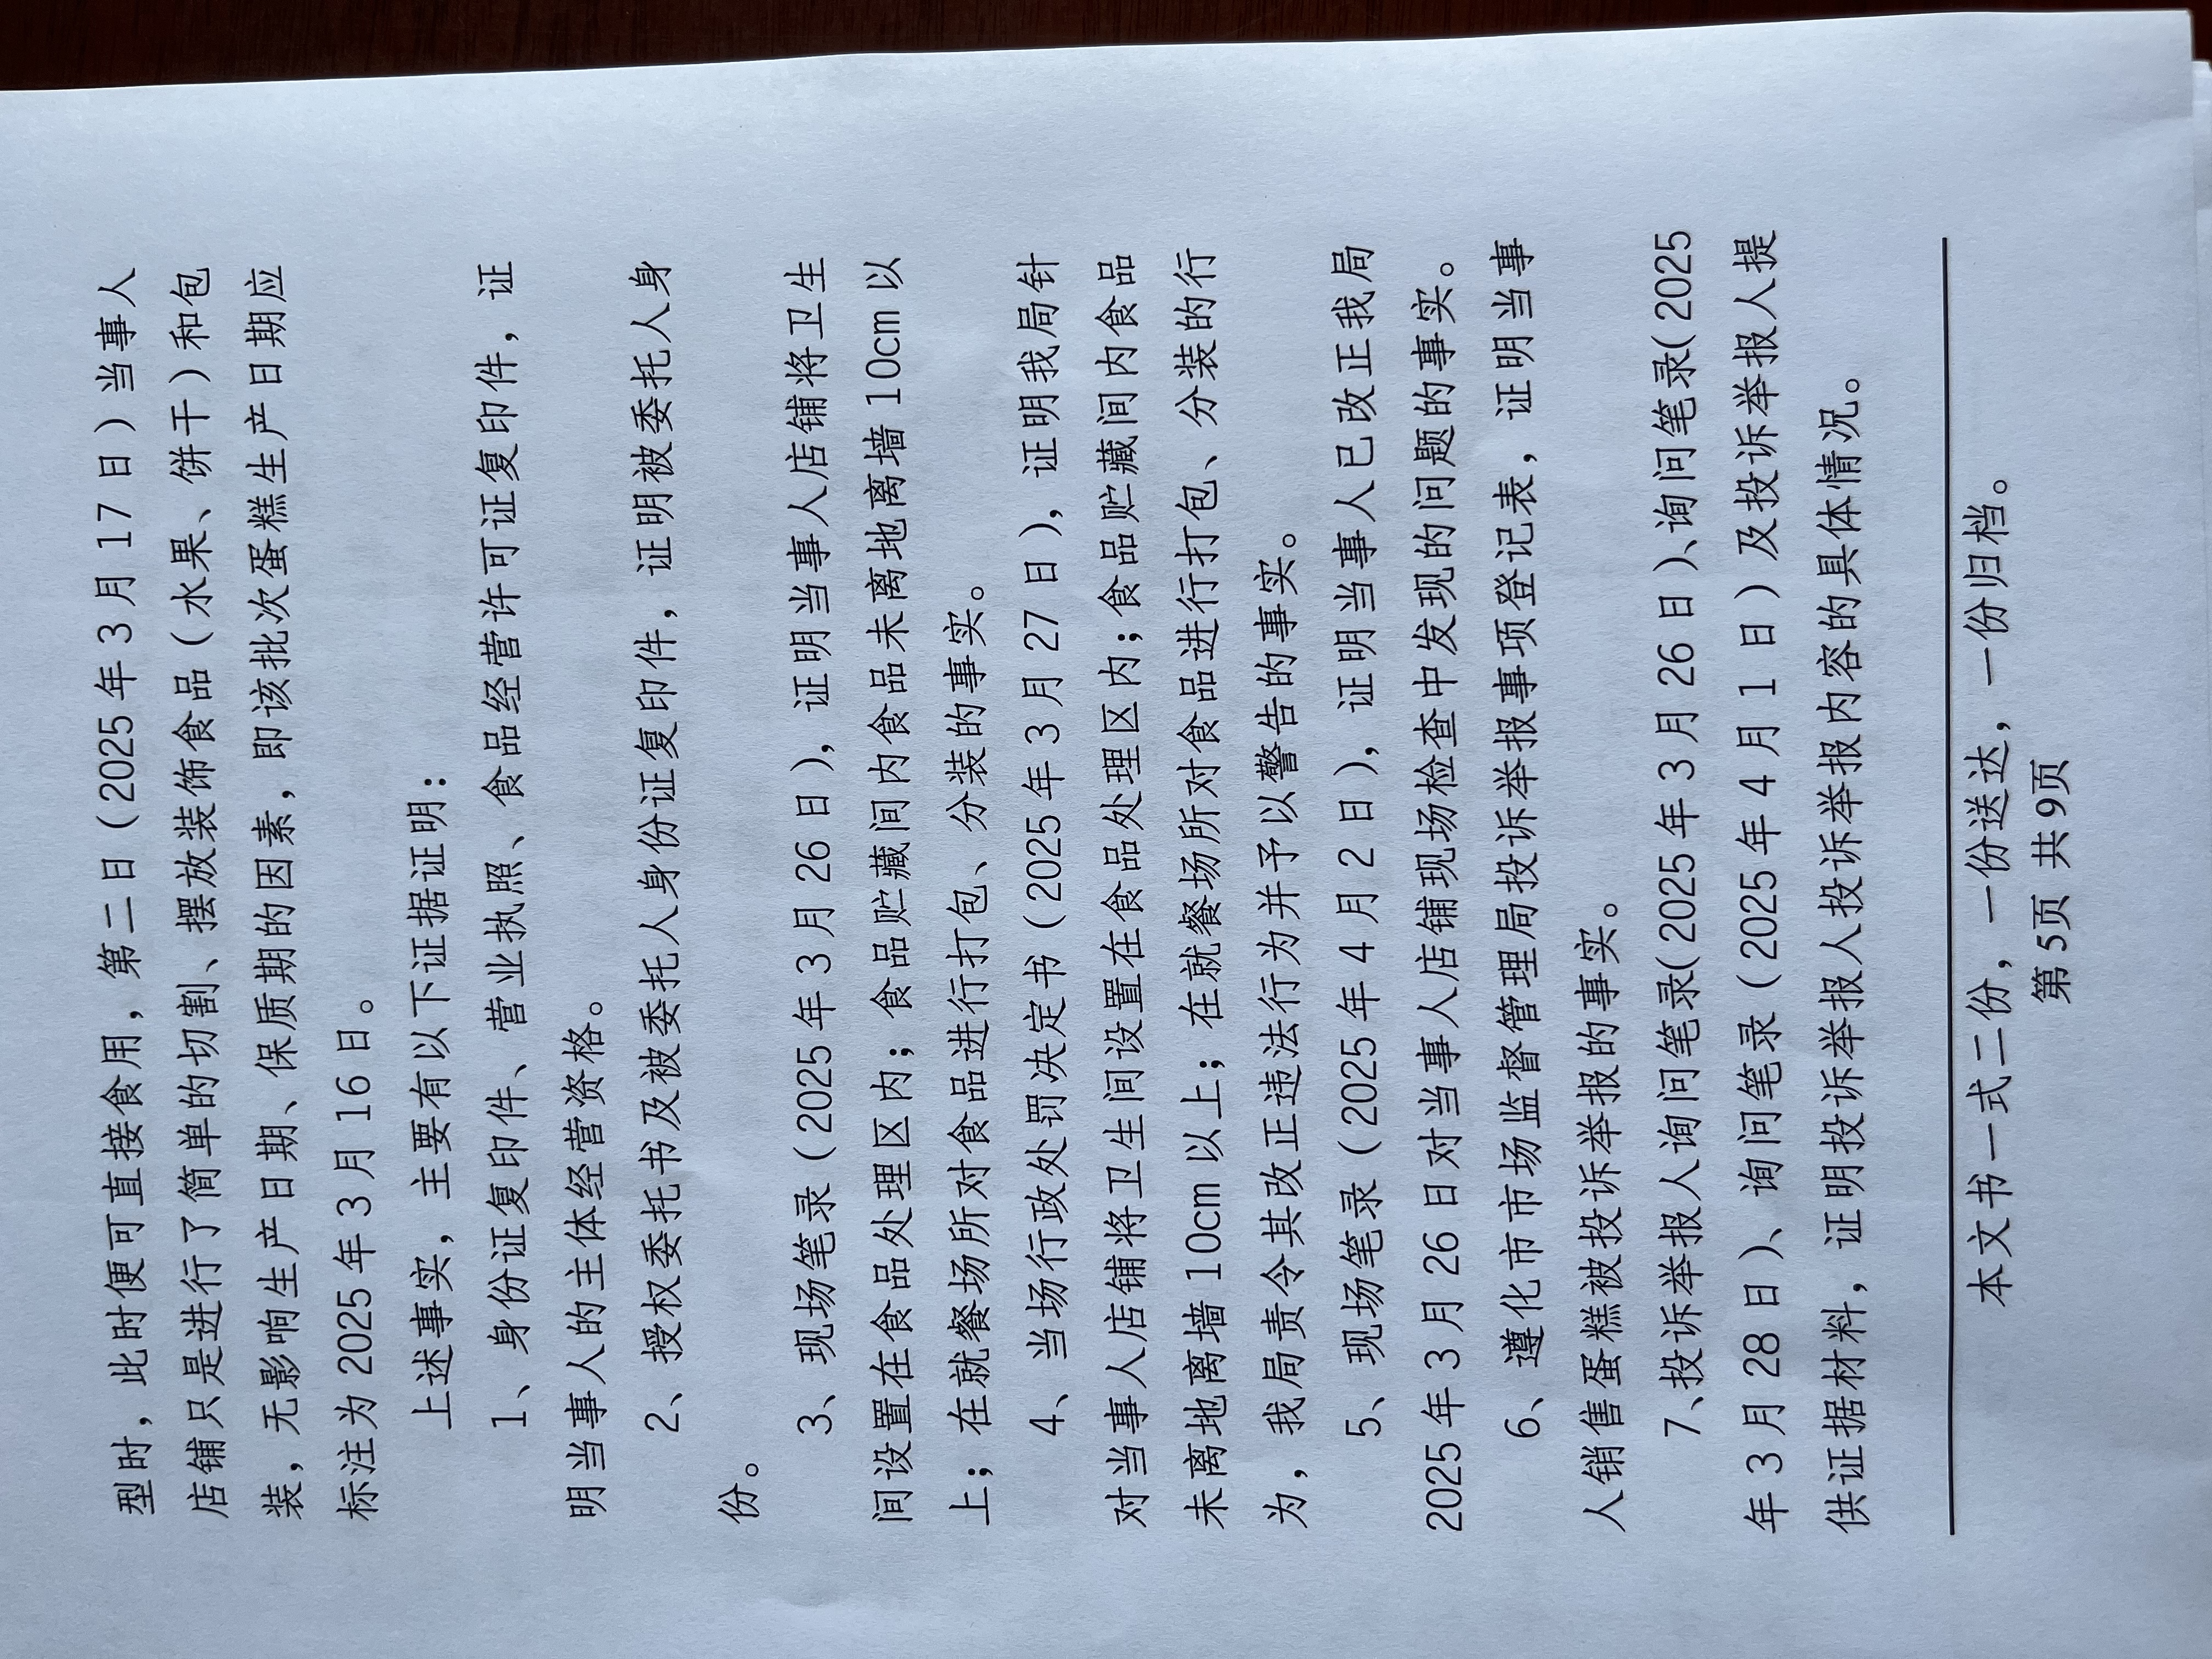 型时，此时便可直接食用，第二日（2025年3月17日）当事人
店铺只是进行了简单的切割、摆放装饰食品（水果、饼干）和包
装，无影响生产日期、保质期的因素，即该批次蛋糕生产日期应
标注为2025年3月16日。
上述事实，主要有以下证据证明：
1、身份证复印件、营业执照、食品经营许可证复印件，证
明当事人的主体经营资格。
2、授权委托书及被委托人身份证复印件，证明被委托人身
份。
3、现场笔录（2025年3月26日），证明当事人店铺将卫生
间设置在食品处理区内；食品贮藏间内食品未离地离墙10cm以
上；在就餐场所对食品进行打包、分装的事实。
4、当场行政处罚决定书（2025年3月27日），证明我局针
对当事人店铺将卫生间设置在食品处理区内；食品贮藏间内食品
未离地离墙10cm以上；在就餐场所对食品进行打包、分装的行
为，我局责令其改正违法行为并予以警告的事实。
5、现场笔录（2025年4月2日），证明当事人已改正我局
2025年3月26日对当事人店铺现场检查中发现的问题的事实。
6、遵化市市场监督管理局投诉举报事项登记表，证明当事
人销售蛋糕被投诉举报的事实。
7、投诉举报人询问笔录(2025年3月26日)、询问笔录(2025
年3月28日)、询问笔录（2025年4月1日）及投诉举报人提
供证据材料，证明投诉举报人投诉举报内容的具体情况。
本文书一式二份，一份送达，一份归档。
第5页 共9页